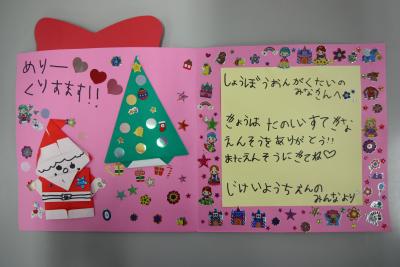 めりー
くりすます!!
しょうぼうおんがくたいの
みなさんへ
きょうは たのしいすてきな
えんそうをありがとう!!
またえんそうにきてね♡
じけいようちえんの
みんなより